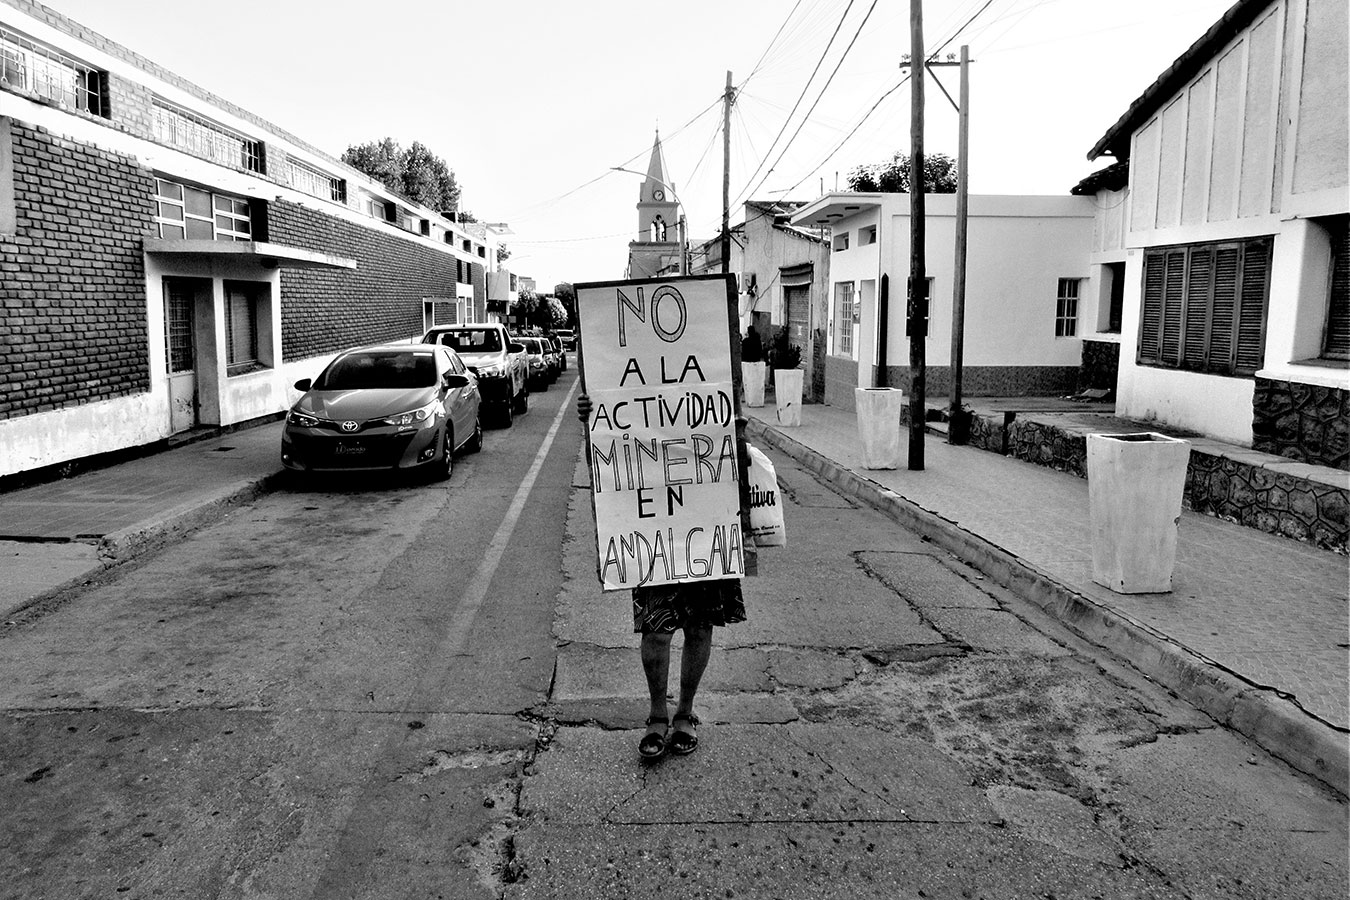 NO
A LA
ACTIVIDAD
MINERA
EN
ANDALGALA
itiva